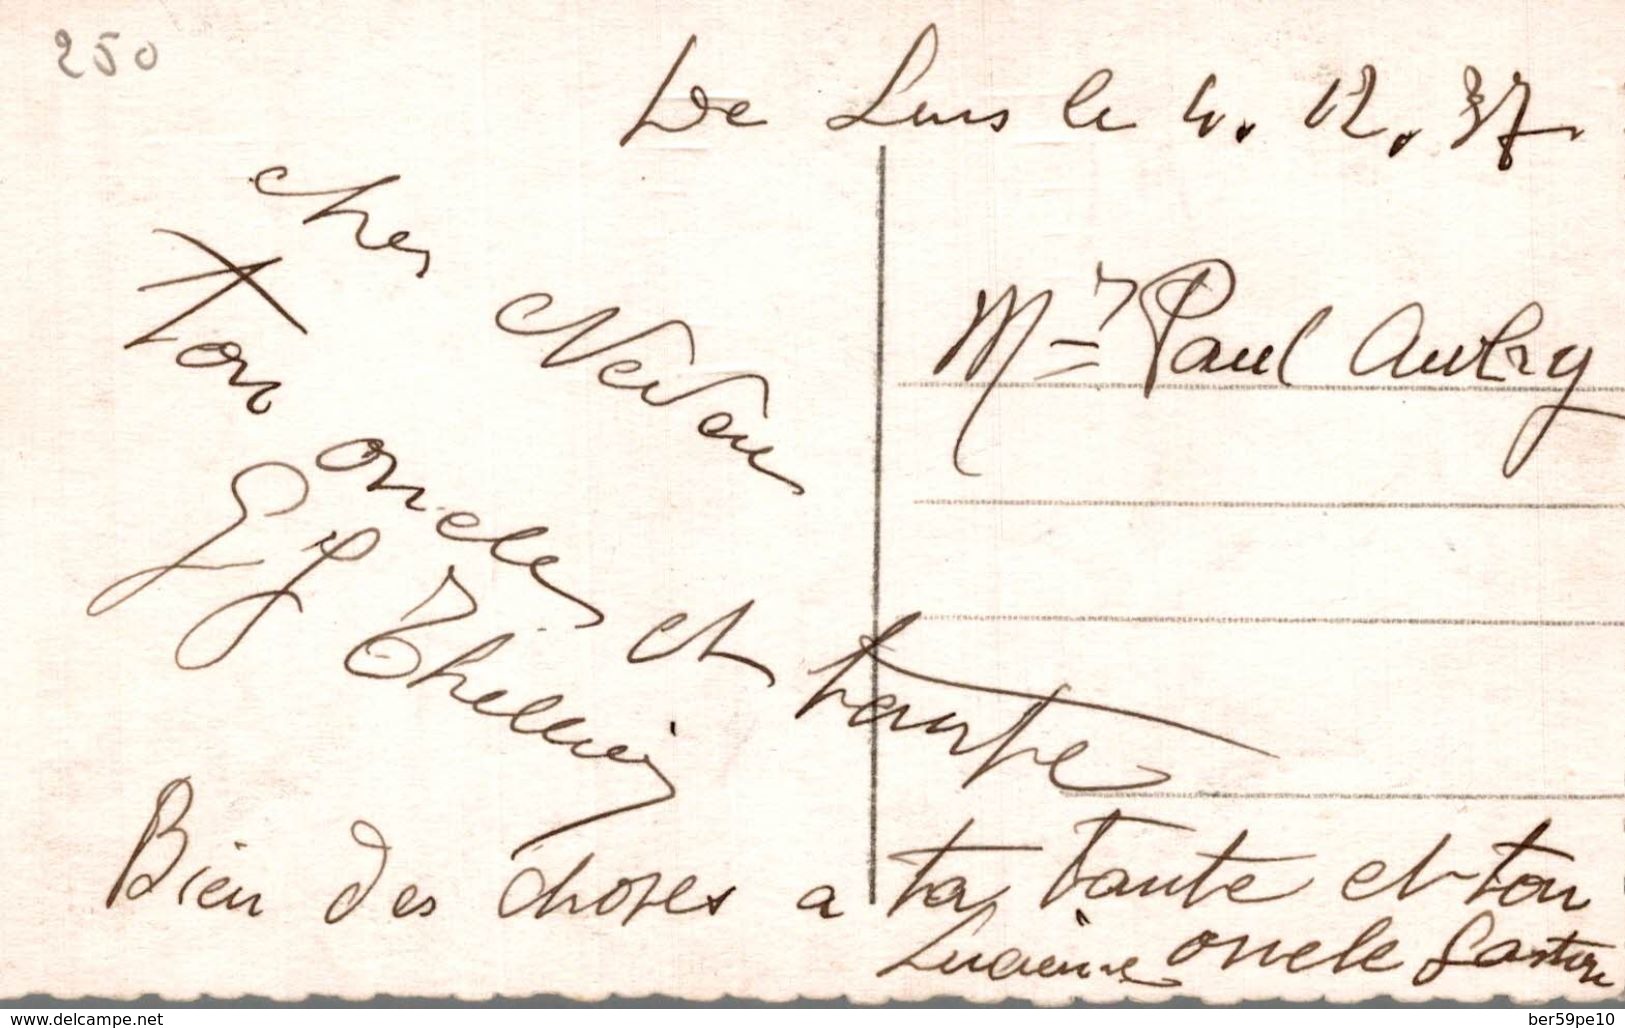 250
De Lens le 4.12.37.
cher Neveu
Mr Paul Aubry
Ton oncle et tante
Bien des choses a ta tante et ton
Lucienne oncle Gaston
www.delcampe.net
ber59pe10